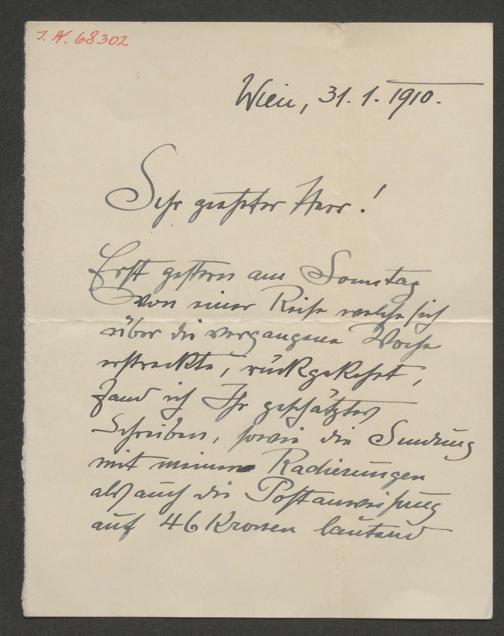 J. N. 68302
Wien, 31. 1. 1910.
Sehr geehrter Herr!
Erst gestern am Sonntag
von einer Reise welche sich
über die vergangene Woche
erstreckte, rückgekehrt,
fand ich Ihr geschätztes
Schreiben, sowie die Sendung
mit meinen Radierungen
als auch die Postanweisung
auf 46 Kronen lautend